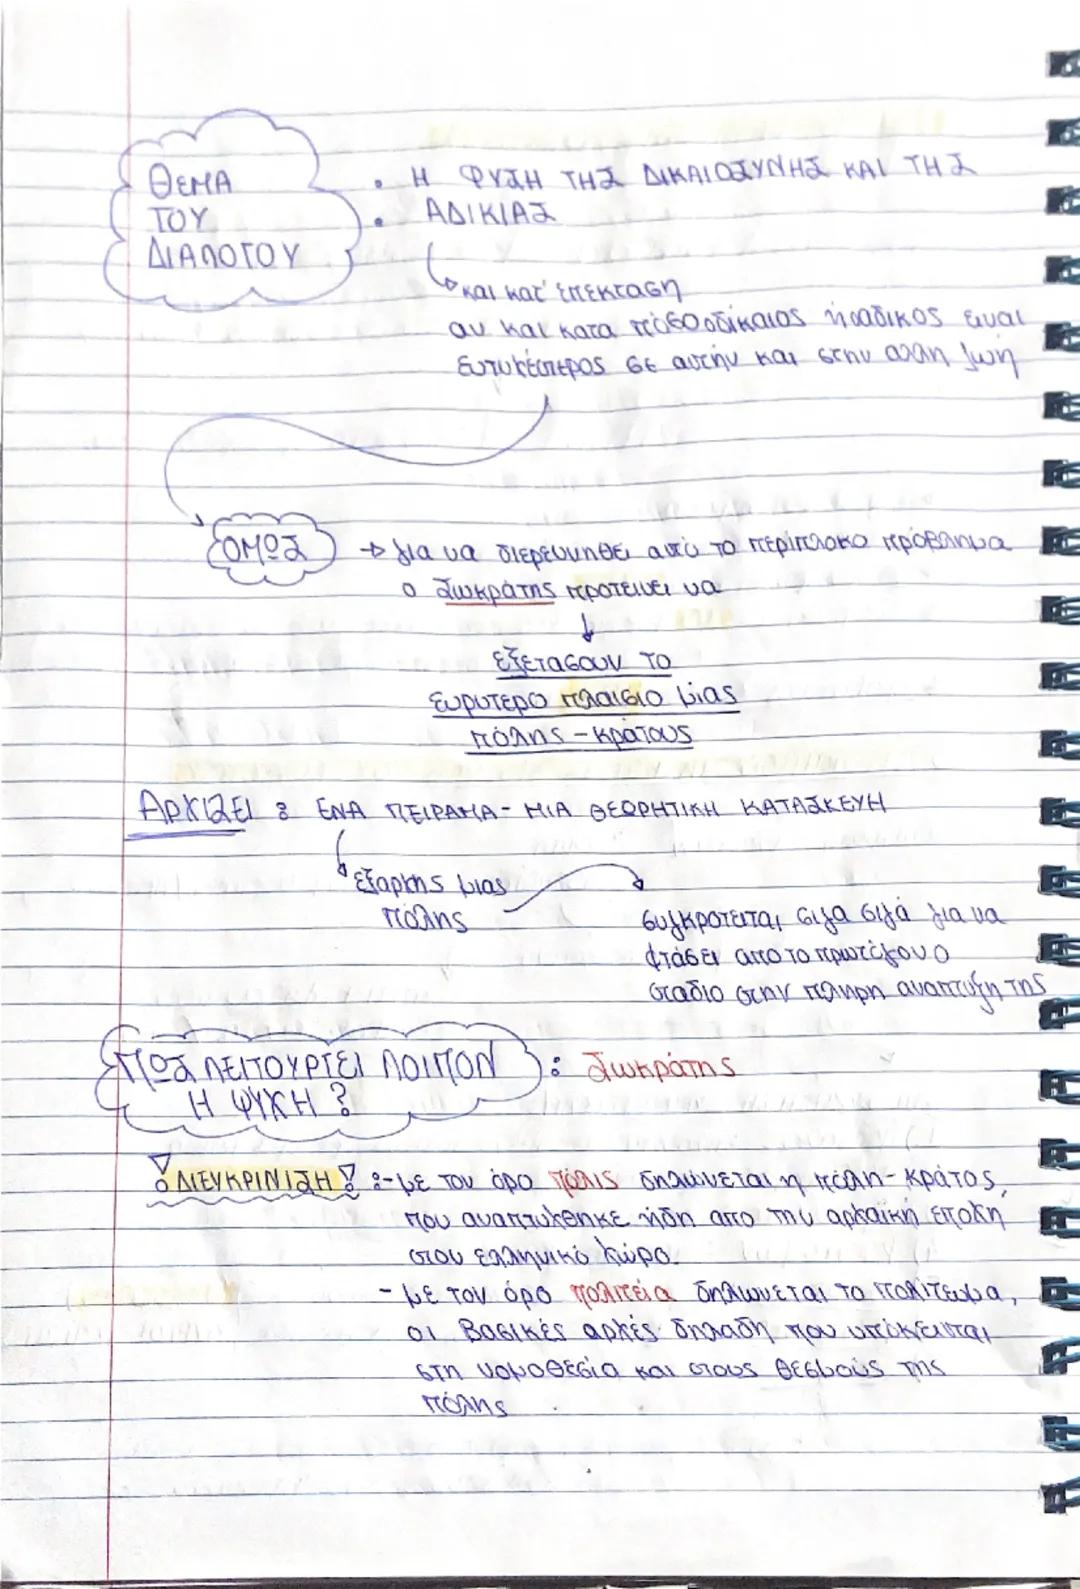 ΘΕΜΑ
ΤΟΥ
ΔΙΑΛΟΓΟΥ
• Η ΦΥΣΗ ΤΗΣ ΔΙΚΑΙΟΣΥΝΗΣ ΚΑΙ ΤΗΣ
• ΑΔΙΚΙΑΣ
↳ και κατ' επέκταση
αν και κατα πόσο ο δίκαιος ή ο αδικος ειναι
ευτυχέστερος σε αυτήν και στην αλλη ζωή
ΟΜΩΣ → για να διερευνηθεί αυτό το περίπλοκο πρόβλημα
ο Σωκράτης προτεινει να
↓
εξετασουν το
ευρυτερο πλαισιο μιας
πόλης - κρατους
ΑΡΧΙΖΕΙ : ΕΝΑ ΠΕΙΡΑΜΑ - ΜΙΑ ΘΕΩΡΗΤΙΚΗ ΚΑΤΑΣΚΕΥΗ
↳ εξαρχης μιας
πόλης
συγκροτειται σιγα σιγά για να
φτάσει απο το πρωτόγονο
σταδιο στην πληρη αναπτυξη της
ΠΩΣ ΛΕΙΤΟΥΡΓΕΙ ΛΟΙΠΟΝ : Σωκράτης
Η ΨΥΧΗ ?
! ΔΙΕΥΚΡΙΝΙΣΗ ! : - με τον όρο πόλις δηλώνεται η πόλη - κράτος,
που αναπτυχθηκε ήδη απο την αρχαϊκή εποχη
στον ελληνικό χώρο.
- με τον όρο πολιτεία δηλωνεται το πολίτευμα,
οι βασικές αρχές δηλαδή που υπόκεινται
στη νομοθεσία και στους θεσμούς της
πόλης